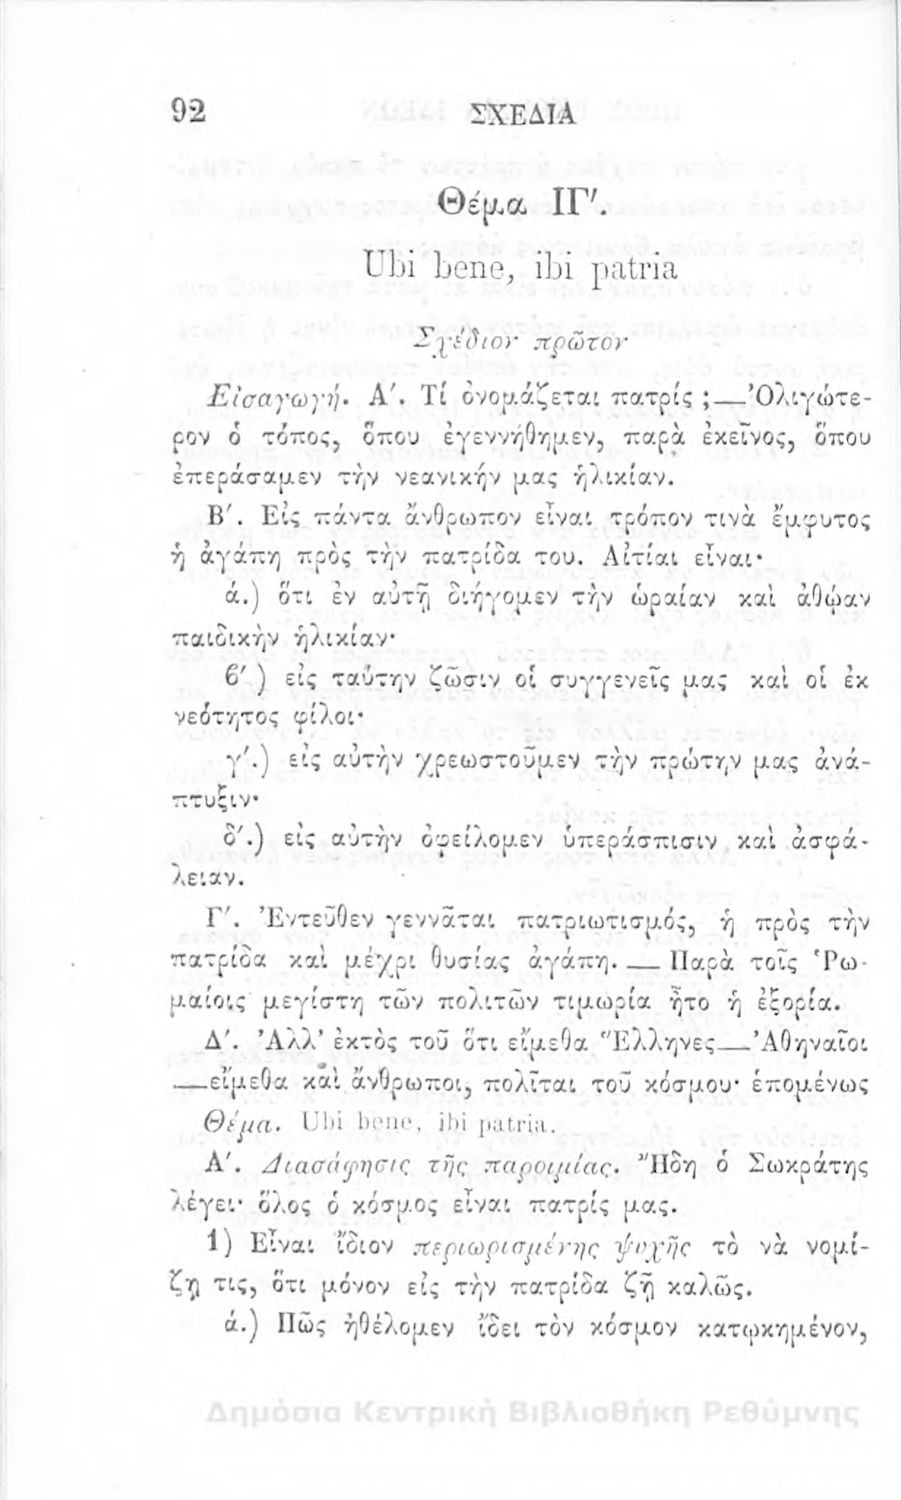 92 ΣΧΕΔΙΑ
Θέμα ΙΓ′.
Ubi bene, ibi patria
Σχέδιον πρῶτον
Εἰσαγωγή. Α′. Τί ὀνομάζεται πατρίς ;—Ὀλιγώτε-
ρον ὁ τόπος, ὅπου ἐγεννήθημεν, παρὰ ἐκεῖνος, ὅπου
ἐπεράσαμεν τὴν νεανικήν μας ἡλικίαν.
Β′. Εἰς πάντα ἄνθρωπον εἶναι τρόπον τινὰ ἔμφυτος
ἡ ἀγάπη πρὸς τὴν πατρίδα του. Αἰτίαι εἶναι·
ά.) ὅτι ἐν αὐτῇ διήγομεν τὴν ὡραίαν καὶ ἀθῴαν
παιδικὴν ἡλικίαν·
ϐ′.) εἰς ταύτην ζῶσιν οἱ συγγενεῖς μας καὶ οἱ ἐκ
νεότητος φίλοι·
γ′.) εἰς αὐτὴν χρεωστοῦμεν τὴν πρώτην μας ἀνά-
πτυξιν·
δ′.) εἰς αὐτὴν ὀφείλομεν ὑπεράσπισιν καὶ ἀσφά-
λειαν.
Γ′. Ἐντεῦθεν γεννᾶται πατριωτισμός, ἡ πρὸς τὴν
πατρίδα καὶ μέχρι θυσίας ἀγάπη. — Παρὰ τοῖς Ῥω-
μαίοις μεγίστη τῶν πολιτῶν τιμωρία ἦτο ἡ ἐξορία.
Δ′. Ἀλλ’ ἐκτὸς τοῦ ὅτι εἴμεθα Ἕλληνες—Ἀθηναῖοι
—εἴμεθα καὶ ἄνθρωποι, πολῖται τοῦ κόσμου· ἑπομένως
Θέμα. Ubi bene, ibi patria.
Α′. Διασάφησις τῆς παροιμίας. Ἤδη ὁ Σωκράτης
λέγει· ὅλος ὁ κόσμος εἶναι πατρίς μας.
1) Εἶναι ἴδιον περιωρισμένης ψυχῆς τὸ νὰ νομί-
ζῃ τις, ὅτι μόνον εἰς τὴν πατρίδα ζῇ καλῶς.
ά.) Πῶς ἠθέλομεν ἴδει τὸν κόσμον κατῳκημένον,
Δημόσια Κεντρική Βιβλιοθήκη Ρεθύμνης